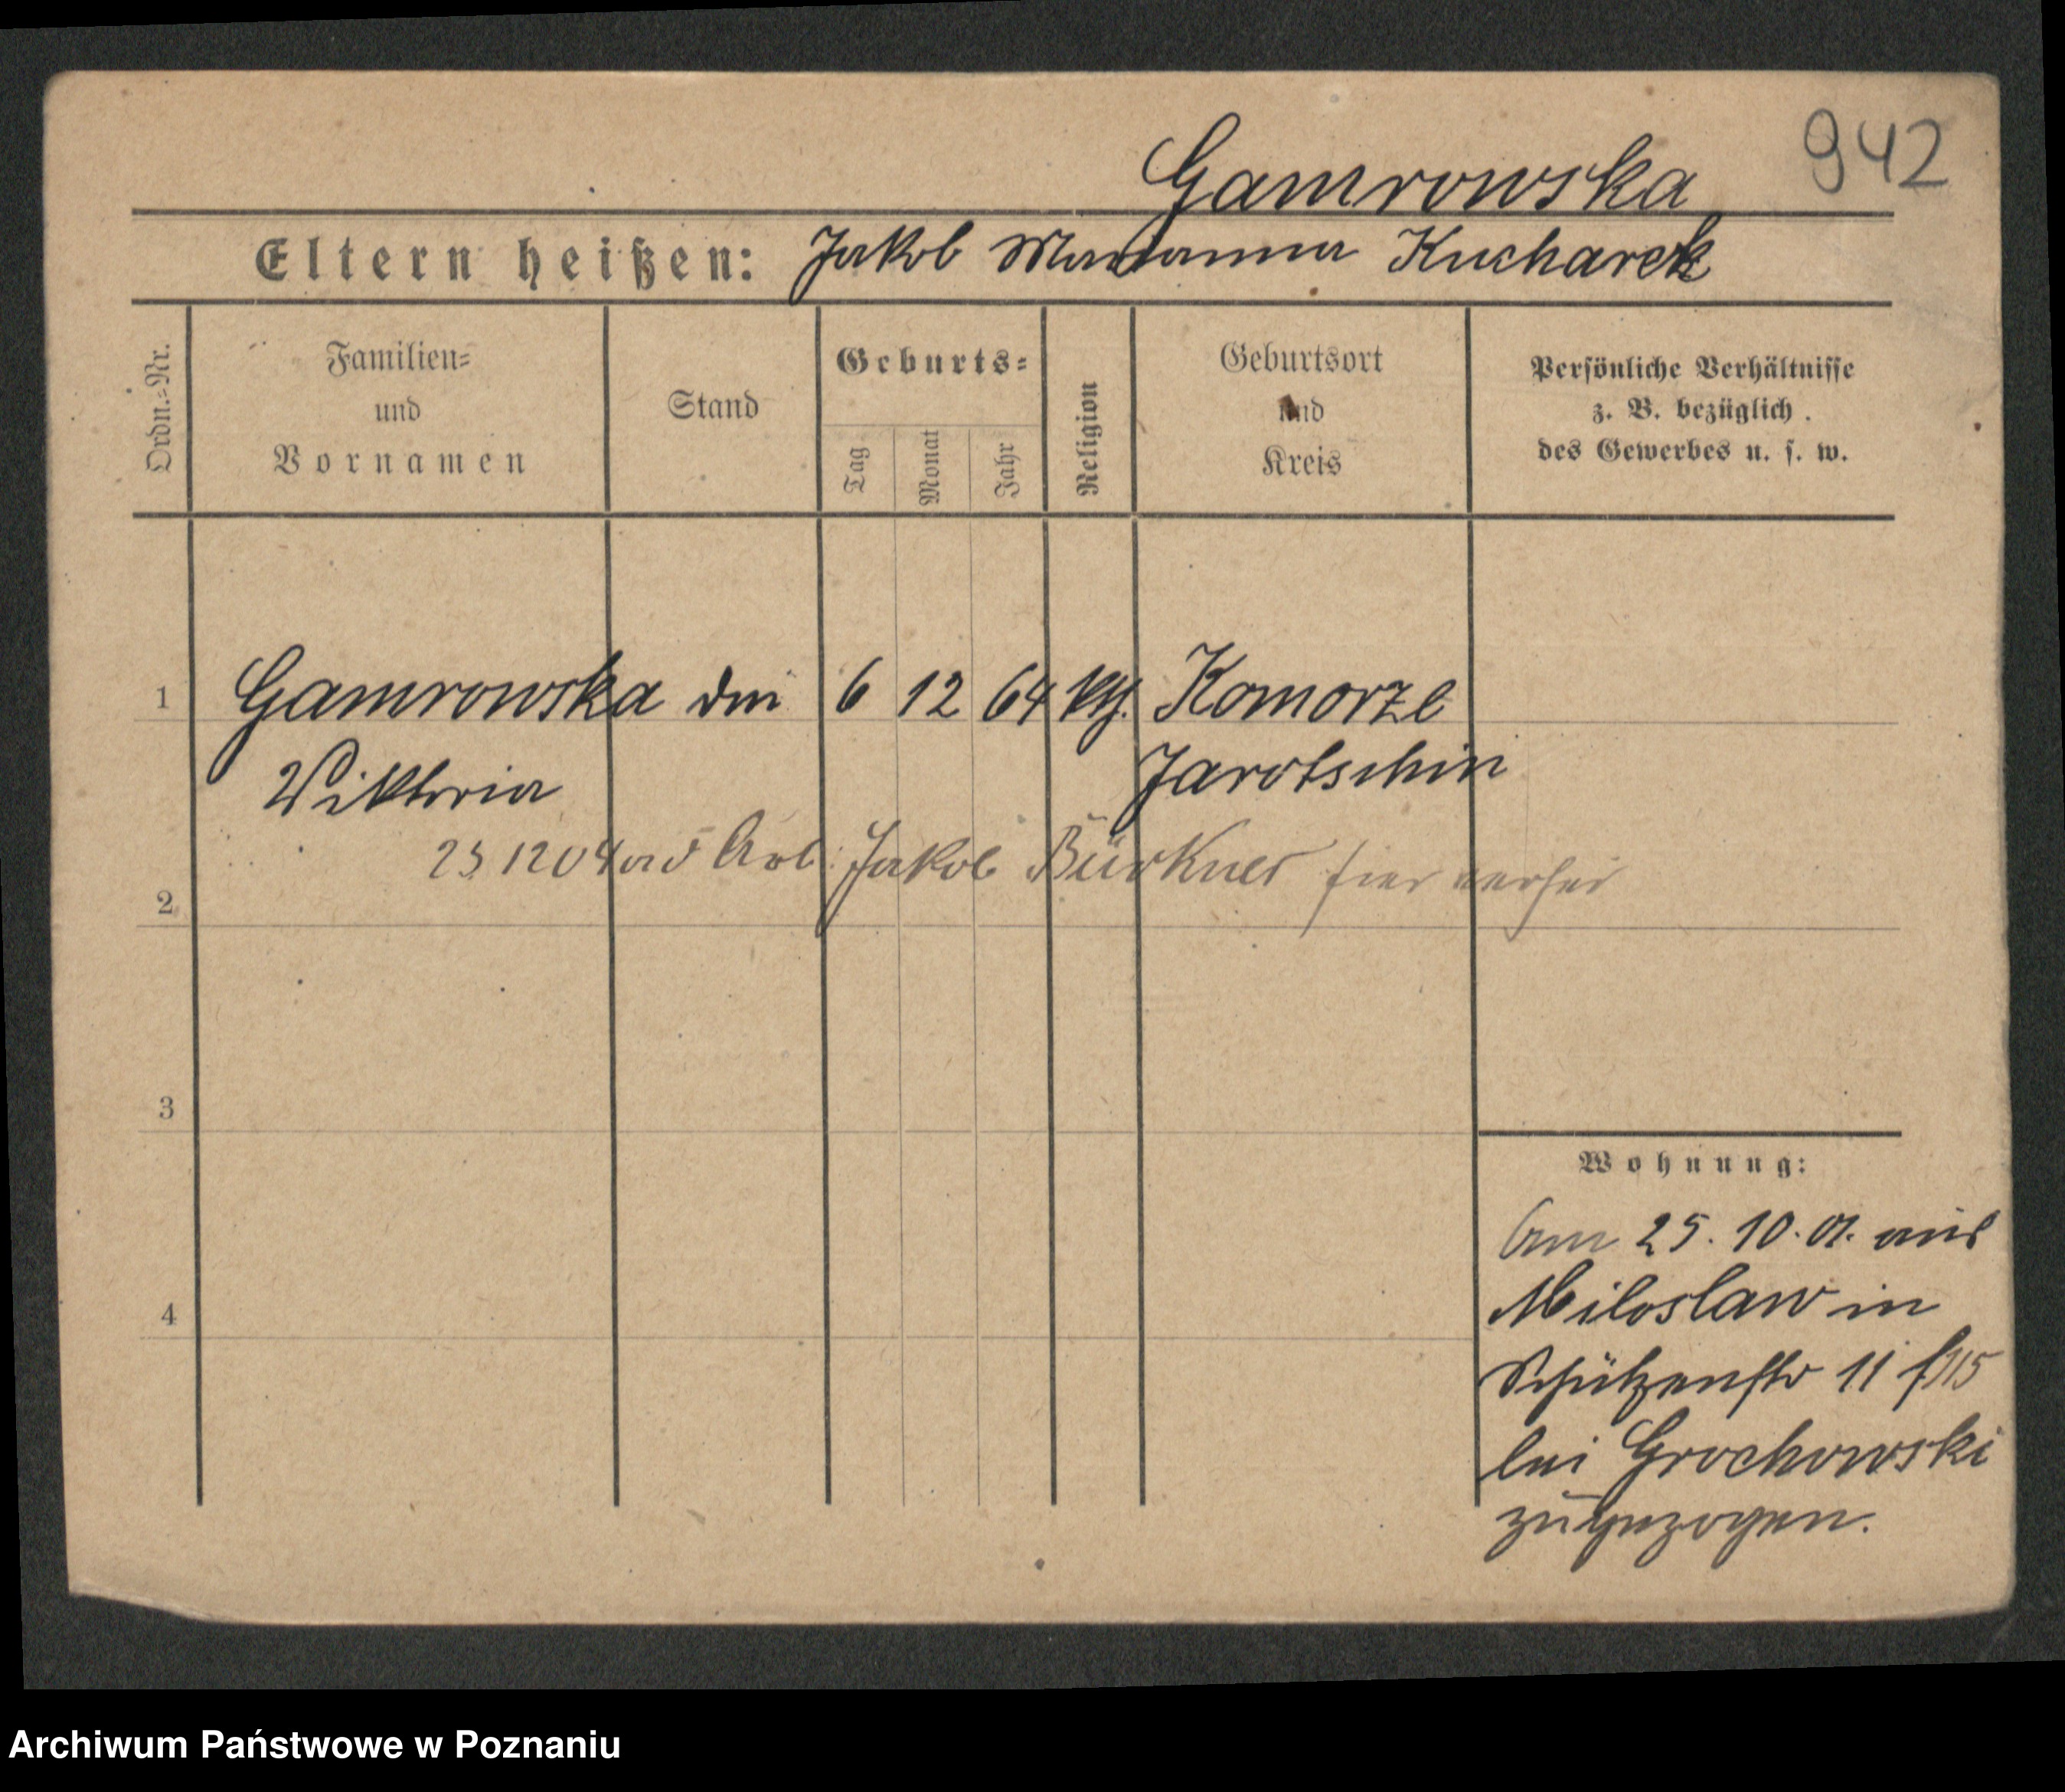 942
Gamrowska
Eltern heißen: Jakob Marianna Kucharek
Ordn.=Nr.
Familien=
und
Vornamen
Stand
Geburts=
Tag
Monat
Jahr
Religion
Geburtsort
und
Kreis
Persönliche Verhältnisse
z. B. bezüglich
des Gewerbes u. s. w.
1 Gamrowska 6 12 64 kth. Komorze
Viktoria Jarotschin
Arb. Jakob Bürkner hier verhei
2
3
4
Wohnung:
Am 25. 10. 01. aus
Miloslaw in
Schützenstr 11
bei Grochowski
zugezogen.
Archiwum Państwowe w Poznaniu